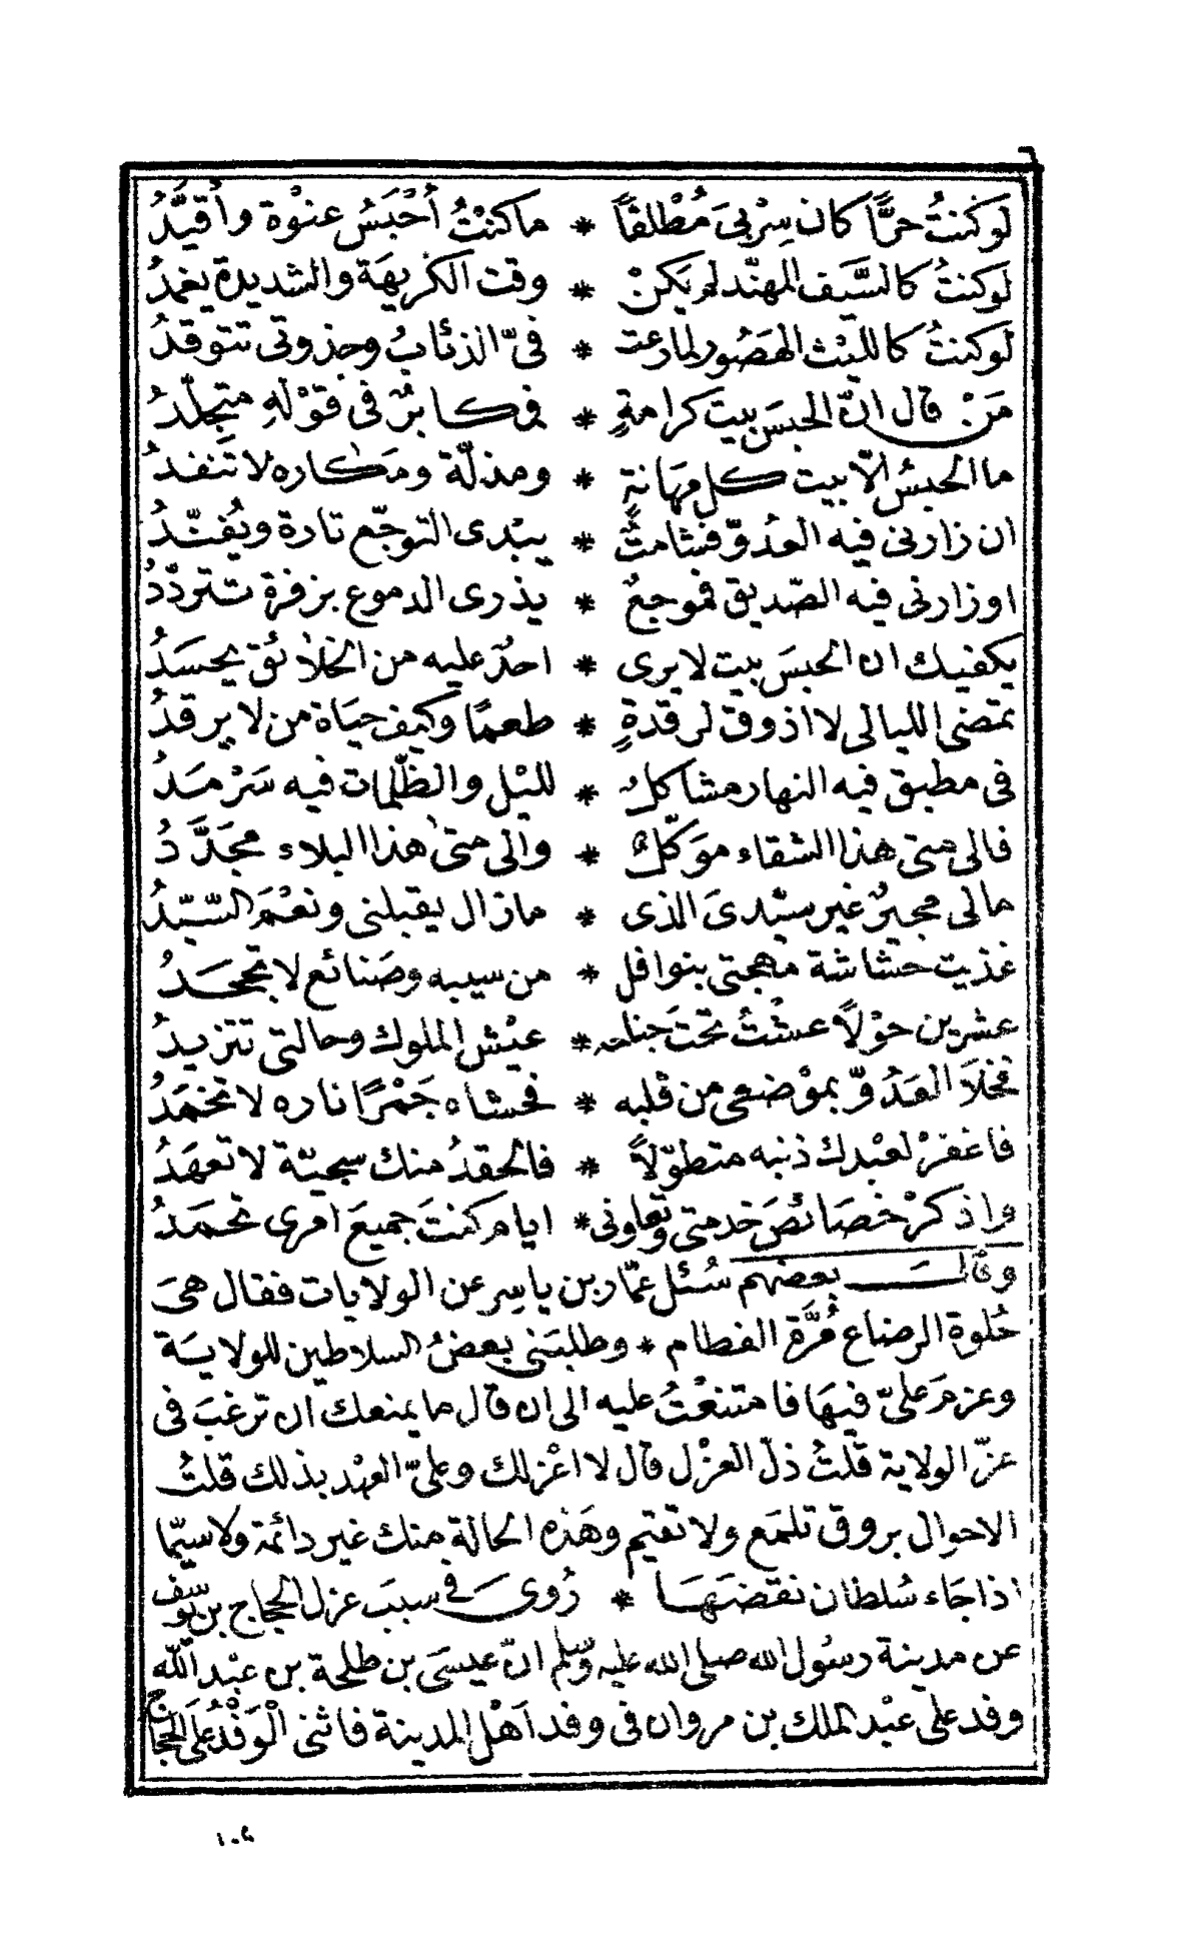 لَو كنتُ حرًّا كان سِرْبىَ مُطْلقًا * ما كنْتُ أُحْبَسُ عنوة وأُقيَّدُ
لَو كنتُ كالسَّيف المهنّد لم يَكنْ * وقت الكَريهَة والشديدة يغمدُ
لَو كنتُ كالليْث الهَصُور لما رعت * فىّ الذئابُ وجذوتى تتوقدُ
مَنْ قال انّ الحبسَ بيت كرامةٍ * فمكابرٌ فى قوْله متجلّدُ
ما الحبسُ الاّ بيت كل مهَانةٍ * ومذلّة ومَكاره لا تَنفدُ
ان زارنى فيه العدُوّ فشامتٌ * يبْدى التوجّع تارة ويُفنّدُ
او زارنى فيه الصّديق فموجعٌ * يذرى الدموع بزفرة تتردّدُ
يكفيك ان الحبسَ بيت لا يرى * احدٌ عليه من الخلائق يحسَدُ
تمضى الليالى لا اذوق لرقدةٍ * طعمًا وكيف حيَاة من لا يرقدُ
فى مطبق فيه النهار مشاكلٌ * لليْل والظّلمات فيه سَرْمَدُ
فالى متى هذا الشقاء موَكّلٌ * والى متىٰ هذا البلاء مجَدَّدُ
مالى مجيرٌ غير سيّدىَ الذى * مازال يقبلنى ونعْمَ السّيّدُ
غذيت حشاشة مهجتى بنوافل * من سيبه وصَنائع لا تجحَدُ
عشرين حوْلاً عشْتُ تحتَ جناحه * عيْش الملوك وحالتى تتزيدُ
فخلاَ العَدُوّ بموْضعى من قلبه * فحشاه جَمْرًا ناره لا تخمَدُ
فاغفرْ لعبْدك ذنبه متطوّلاً * فالحقدُ منك سجيّة لا تعهَدُ
واذكرْ خصَائصَ خدمتى وتعاونى * ايام كنتَ جميعَ امرى تحمَدُ
وقالَ بعضهم سُئل عمّار بن ياسِر عن الولايات فقال هىَ
حُلوة الرضاع مُرَّة الفطام * وطلبَنى بعضُ السلاطين للولايَة
وعزمَ علىّ فيهَا فامتنعْتُ عليه الى ان قال ما يمنعك ان ترغبَ فى
عزّ الولاية قلتُ ذلّ العزْل قال لا اعْزلك وعلىّ العهد بذلك قلتُ
الاحوال بروق تلمَع ولا تقيم وهَذه الحالة منك غير دائمة ولا سيّما
اذا جَاء سُلطان نقضَهَا * رُوىَ فى سببَ عزل الحجاج بن يوسف
عن مدينة رسُول الله صلى الله عليه وسلم انّ عيسَى بن طلحة بن عبْد الله
وفد على عبْد الملك بن مروان فى وفد اَهْل المدينة فاثنى الْوَفْدُ علَى الحجّاج
١٠٤